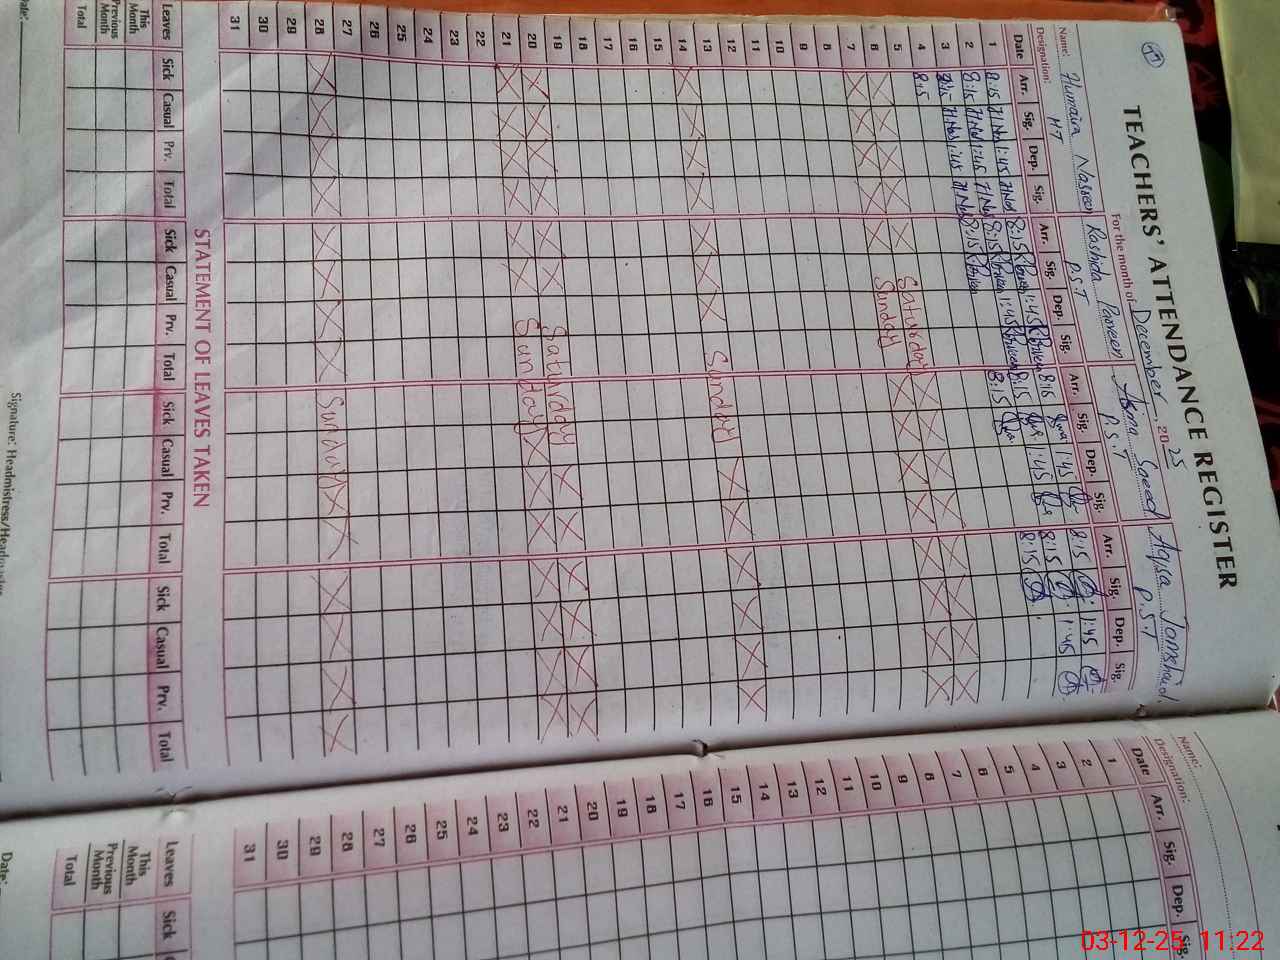 TEACHERS' ATTENDANCE REGISTER
For the month of December, 2025
Name: Humaira Nasreen Rashida Parveen Asma Saeed Aqsa Jamshaid
Designation: HT P.S.T P.S.T P.S.T
Date Arr. Sig. Dep. Sig. Arr. Sig. Dep. Sig. Arr. Sig. Dep. Sig. Arr. Sig. Dep. Sig.
1 8:15 1:45 8:15 1:45 8:15 1:45 8:15 1:45
2 8:15 1:45 8:15 1:45 8:15 1:45 8:15 1:45
3 8:15 1:45 8:15 8:15 8:15
4 8:15
5
6 Saturday
7 Sunday
8
9
10
11
12
13
14 Sunday
15
16
17
18
19
20 Saturday
21 Sunday
22
23
24
25
26
27
28 Sunday
29
30
31
STATEMENT OF LEAVES TAKEN
Leaves Sick Casual Prv. Total Sick Casual Prv. Total Sick Casual Prv. Total Sick Casual Prv. Total
This Month
Previous Month
Total
Date:
Signature: Headmistress/Headmaster
Name:
Designation:
Date Arr. Sig. Dep. Sig.
1
2
3
4
5
6
7
8
9
10
11
12
13
14
15
16
17
18
19
20
21
22
23
24
25
26
27
28
29
30
31
Leaves Sick
This Month
Previous Month
Total
Date:
03-12-25 11:22